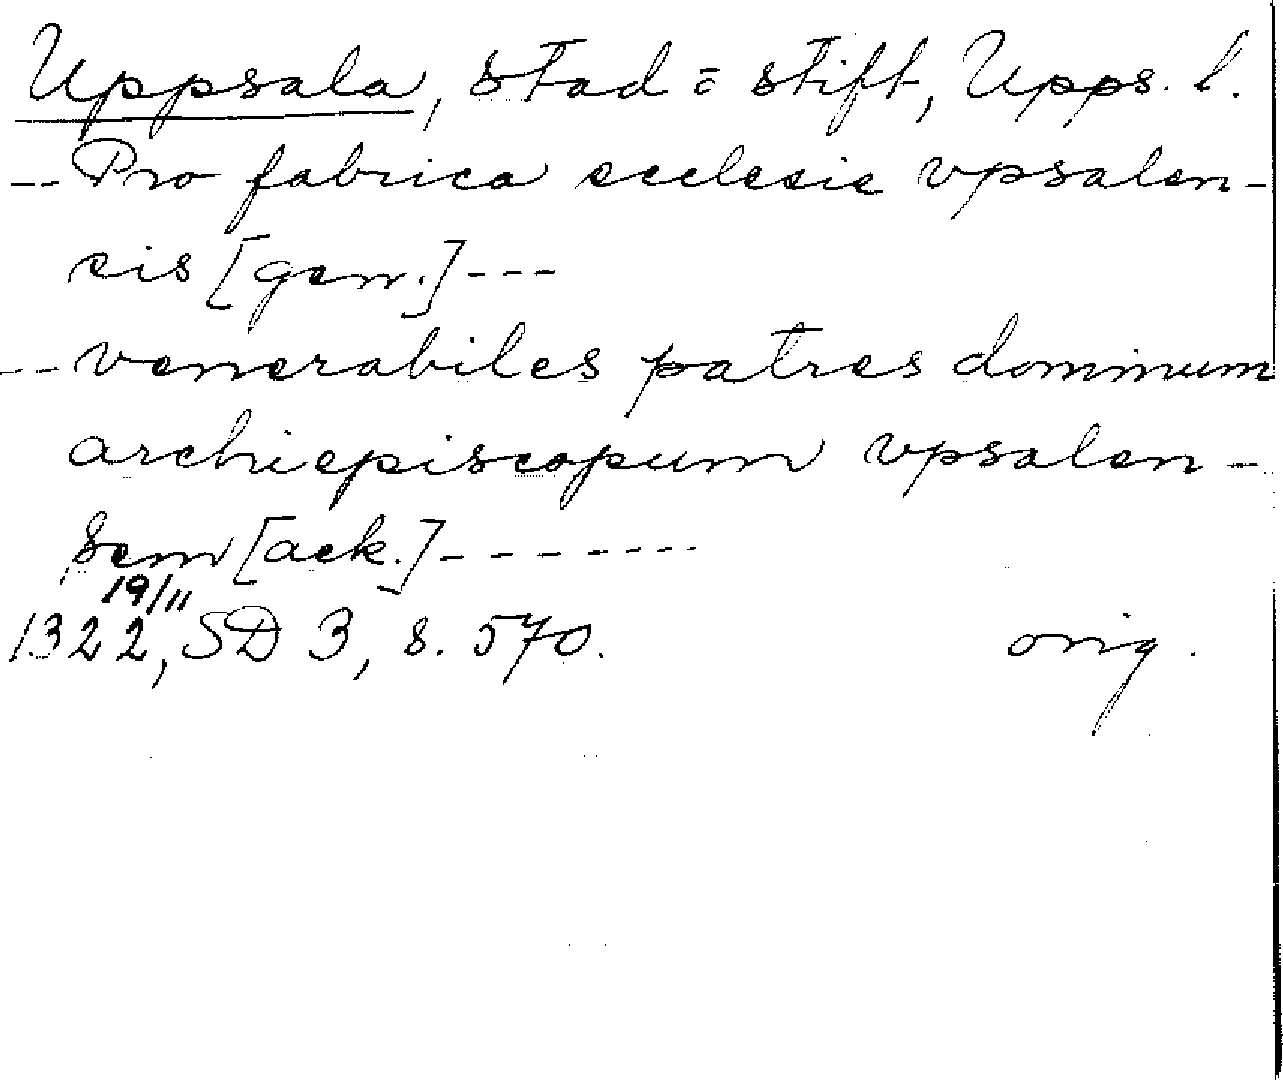 Uppsala, stad = stift, Upps. l.
-- Pro fabrica ecclesie vpsalen-
sis [gen.] ---
-- venerabiles patres dominum
archiepiscopum vpsalen-
sem [ack.] --------
19/11
1322, SD 3, s. 570. orig.